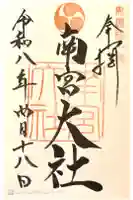 奉拝
南宮大社
令和八年四月十八日